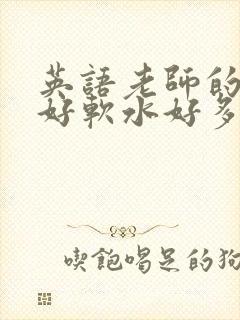 英語老師的
好軟水好多
喫飽喝足的狗